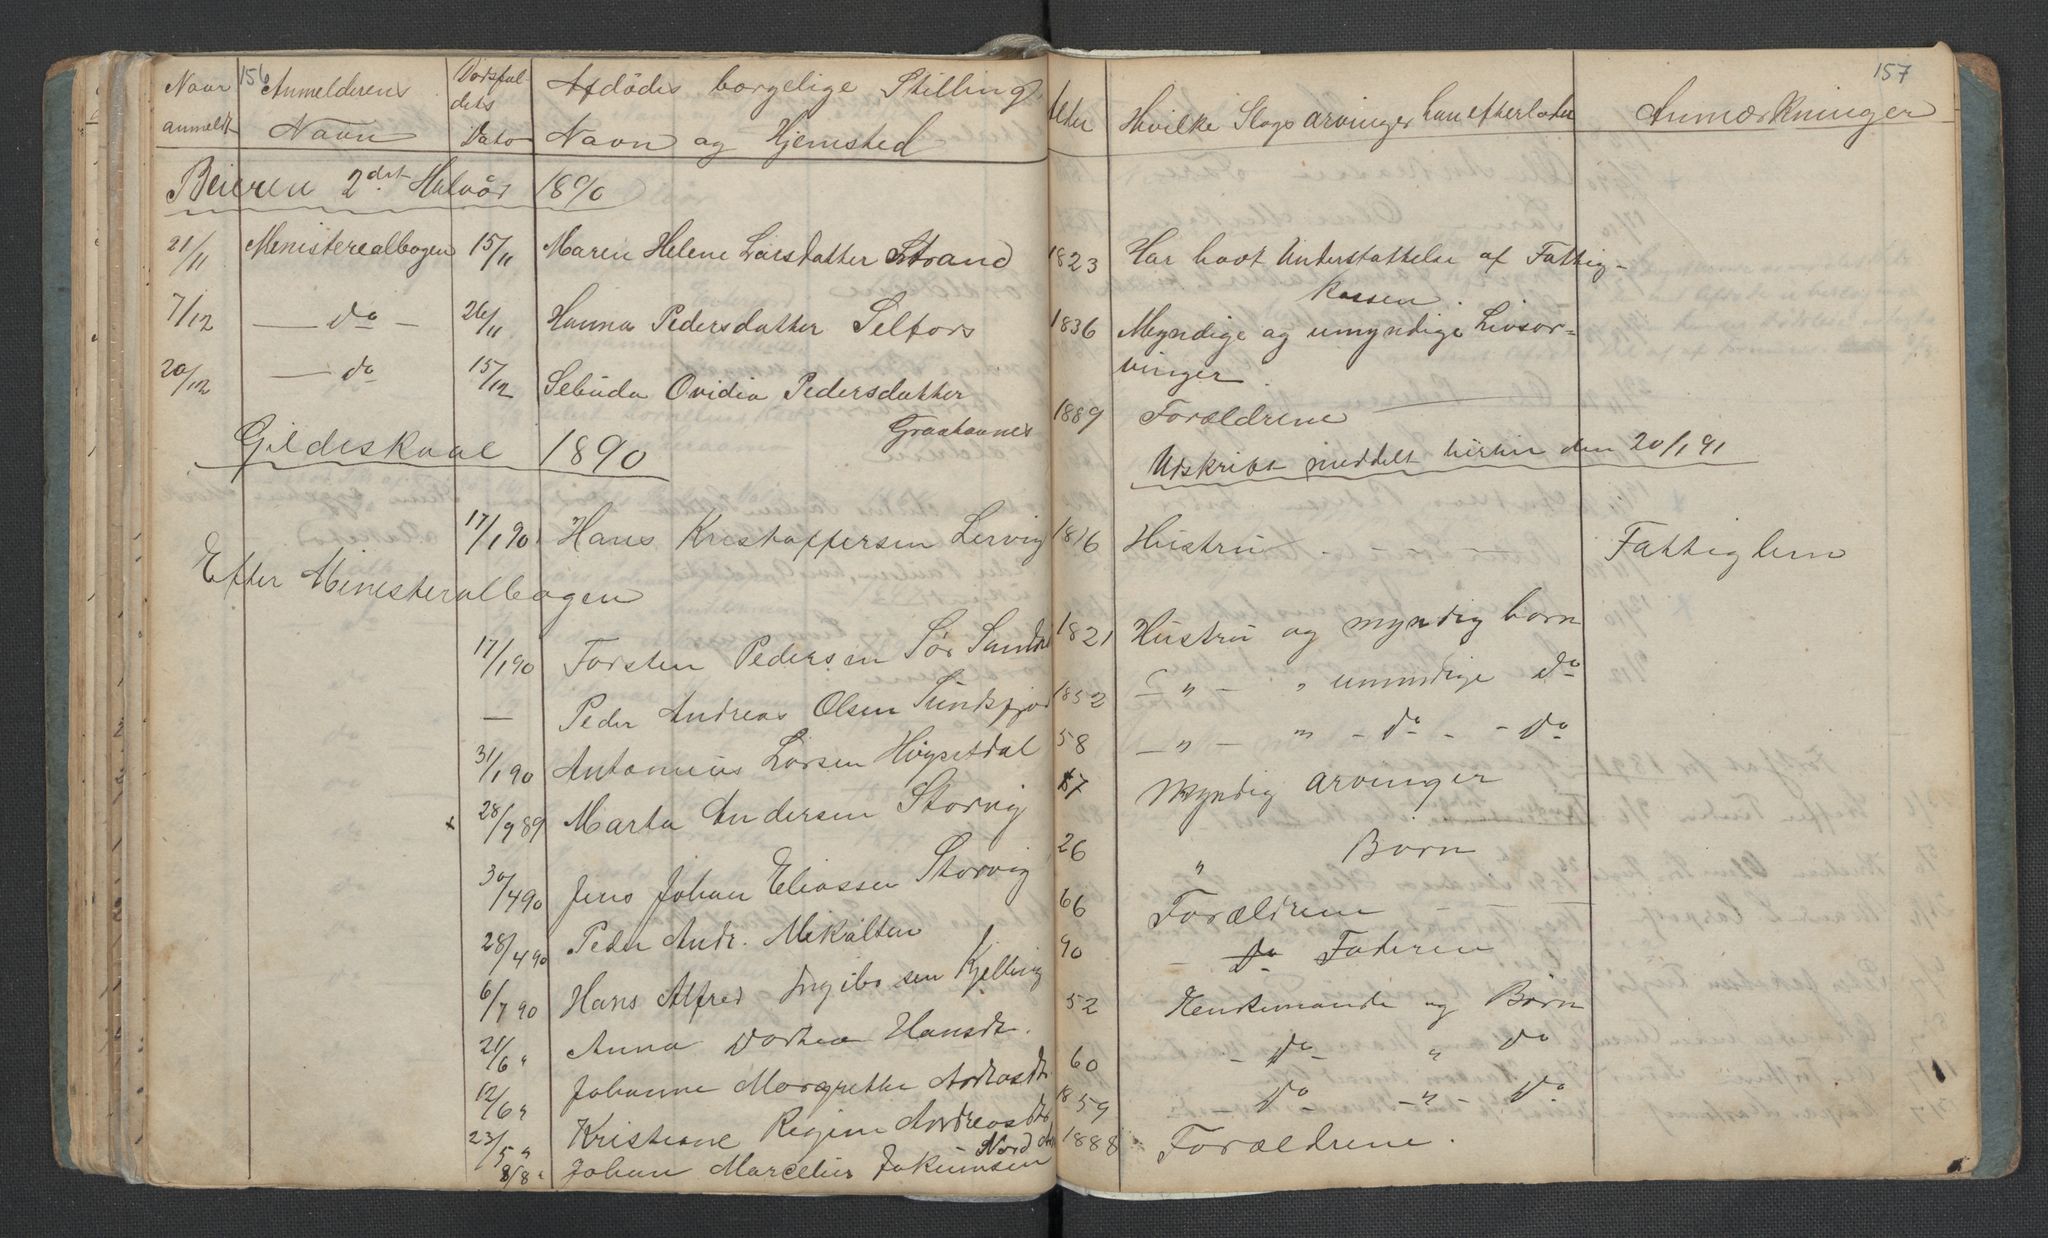 156
157
Naar anmeldt Anmelderens Navn Dødsfaldets Dato Afdødes borgelige Stilling, Navn og Hjemsted Alder Hvilke Slags arvinger han efterlader Anmærkninger
Beieren 2det Halvår 1890
21/11 Ministerealbogen 15/11 Maren Helene Larsdatter Strand 1823 Har havt Understøttelse af Fattig-
Kassen.
7/12 — do — 26/11 Hanna Pedersdatter Selfors 1836 Myndige og umyndige Livsar-
vinger.
20/12 — do 15/12 Selinda Ovidia Pedersdatter
Graataanes 1889 Forældrene
Gildeskaal 1890
Udskrift meddelt hertil den 20/1 91
17/1 90 Hans Kristoffersen Lervig 1816 Hustru - - - Fattiglem
Efter Ministeralbogen
17/1 90 Torsten Pedersen Sør Sandnes 1821 Hustru og myndig børn
— Peder Andreas Olsen Sundsfjord 1852 — " — " umyndige do
31/1 90 Antonius Larsen Høgsetdal 58 — " — " - do - - do
x 28/9 89 Marta Andersen Storvig 57 Myndig arvinger
30/4 90 Jens Johan Eliassen Storvig 26 " Børn
28/4 90 Peder Andr. Mikalsen 66 Forældrene — — —
6/7 90 Hans Alfred Ingibo sen Kjelling 90 - do Faderen
21/6 " Anna Dorthea Hansdt. 52 Henkemande og Børn
12/6 " Johanne Margrethe Andreasdt. 60 - do - " do
23/5 " Kristiane Regine Andreasdt. 1859 do - " - do
Nord
8/8 " Johan Marcelius Jakumsen 1888 Forældrene.